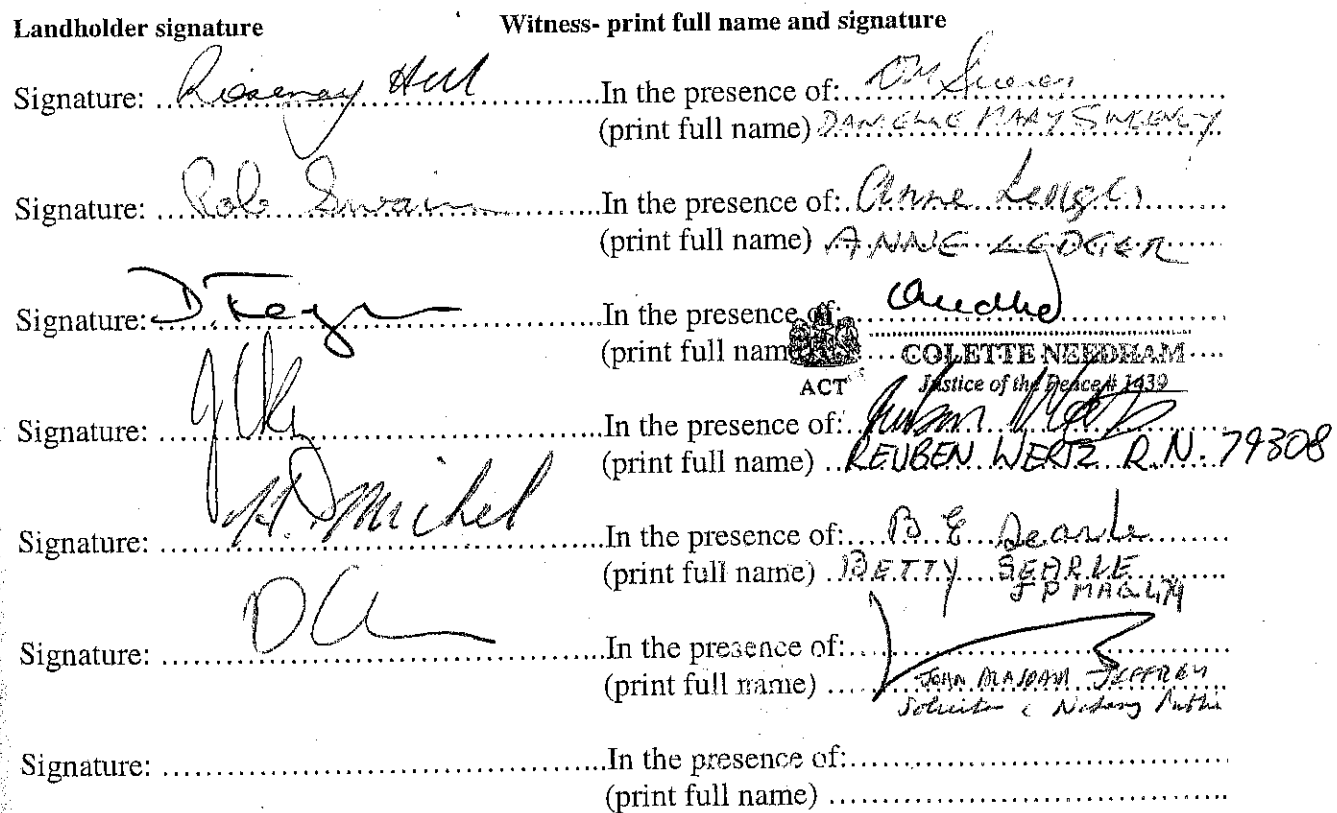 Landholder signature Witness- print full name and signature
Signature: Rosemary Hill In the presence of:
(print full name) DANIELLE MARY SWEENEY
Signature: Rob Swain In the presence of: Anne Ledger
(print full name) ANNE LEDGER
Signature: In the presence of:
(print full name) COLETTE NEEDHAM
ACT Justice of the Peace # 1439
Signature: In the presence of:
(print full name) REUBEN WERTZ R.N. 79308
Signature: H.D. Michel In the presence of: B E Searle
(print full name) BETTY SEARLE
J P MAG
Signature: In the presence of:
(print full name) JOHN JEFFREY
Solicitor & Notary Public
Signature: In the presence of:
(print full name)